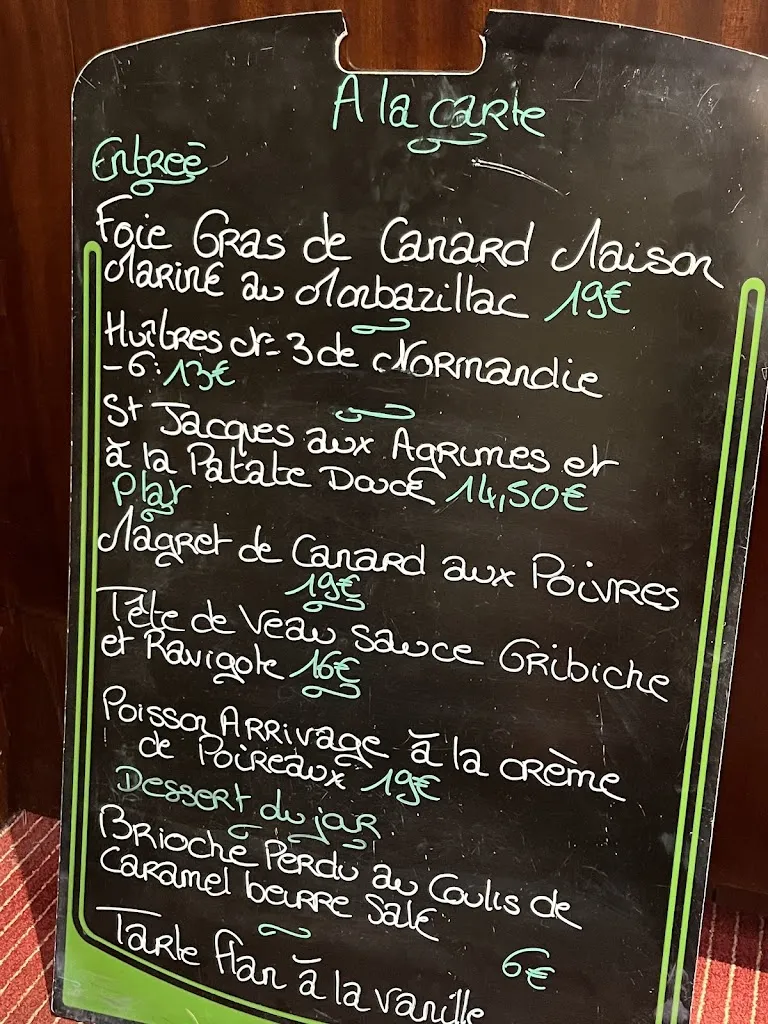 A la carte
Entreé
Foie Gras de Canard Maison
Mariné au Monbazillac 19€
Huîtres N°3 de Normandie
- 6 : 13€
St Jacques aux Agrumes et
à la Patate Douce 14,50€
Plat
Magret de Canard aux Poivres
19€
Tête de Veau sauce Gribiche
et Ravigote 16€
Poisson Arrivage à la crème
de Poireaux 19€
Dessert du jour
Brioche Perdu au Coulis de
Caramel beurre Salé
6€
Tarte flan à la vanille